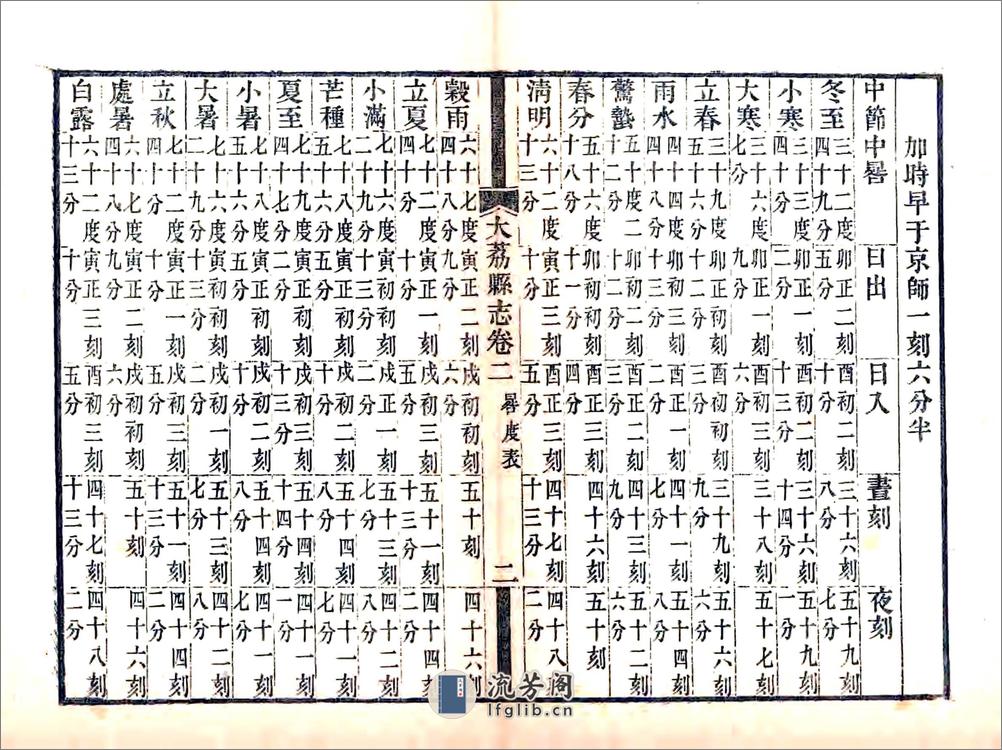 加時早于京師一刻六分半
中節
中晷
日出
日入
晝刻
夜刻
冬至
三十二度卯正二刻酉初二刻三十六刻五十九刻
五分十分八分七分
小寒
卯正二刻酉初二刻三十六刻五十九刻
二分十三分十四分一分
大寒
卯正一刻酉初三刻三十八刻五十七刻
九分六分
立春
三十九度卯正初刻三十九刻五十五刻
九分六分
雨水
四十四度卯正初刻
驚蟄
五十度
十二分九分六分
春分
五十六度卯初酉正四十六刻五十刻
十八分十一分四分
清明
六十二度寅正三刻酉正三刻四十七刻四十八刻
十三分十分五分十三分二分
大荔縣志卷二
晷度表
二
穀雨
六十七度寅正二刻戌初初刻五十刻四十六刻
四十八分九分六分
立夏
七十二度寅正一刻戌初三刻五十一刻四十四刻
四十分十分五分十三分二分
小滿
七十六度寅正初刻戌正一刻五十三刻四十一刻
二十九分十三分二分七分八分
芒種
七十八度寅正初刻戌初二刻五十四刻四十一刻
五十六分五分十分八分七分
夏至
七十九度寅正初刻戌初二刻五十四刻四十一刻
四十七分二分十三分十四分一分
小暑
七十八度寅正初刻戌初二刻五十四刻四十一刻
五十六分五分十分八分七分
大暑
七十六度寅正初刻戌初一刻五十三刻四十一刻
十三分二分七分八分
立秋
七十二度寅正一刻戌初三刻五十一刻四十四刻
四十分十分五分十三分二分
處暑
六十七度寅正二刻戌初初刻五十刻四十六刻
四十八分九分六分
白露
六十二度寅正三刻酉初三刻四十七刻四十八刻
十三分十分五分十三分二分
流芳閣
lfglib.cn